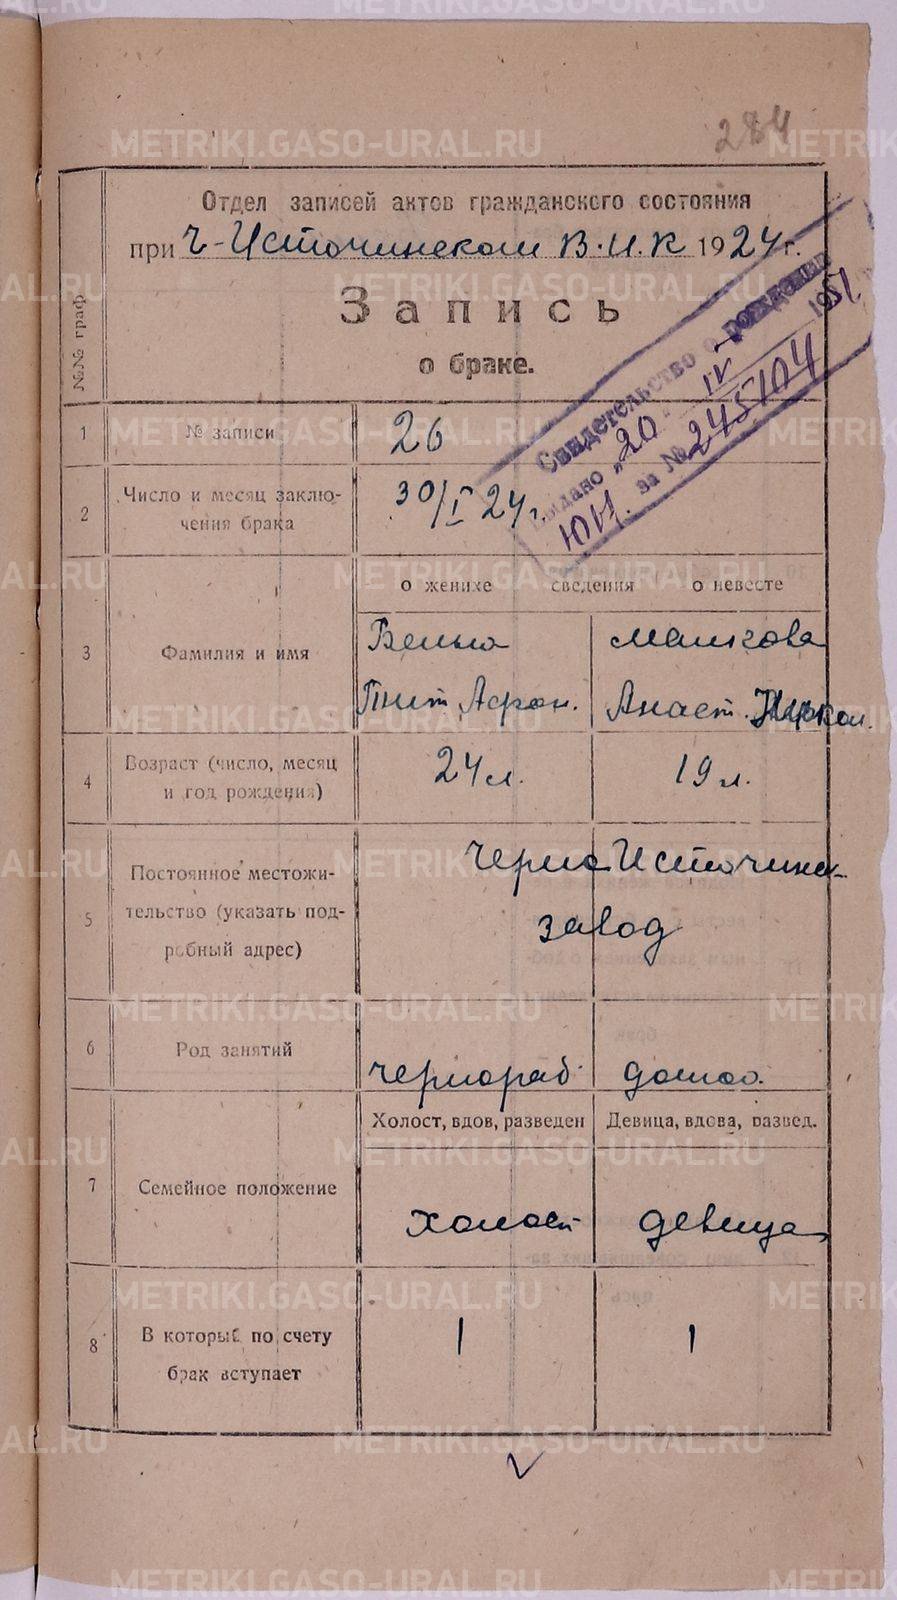 284
Отдел записей актов гражданского состояния
при Ч-Источинском В.И.К 1924 г.
Запись
о браке.
№№ граф
Свидетельство о рождении
выдано „20 IV 1951
за № 245104
ЮН.
1 № записи 26
2 Число и месяц заклю-
чения брака 30/I 24 г.
о женихе сведения о невесте
3 Фамилия и имя
Анаст.
4 Возраст (число, месяц
и год рождения) 24 л. 19 л.
5 Постоянное местожи-
тельство (указать под-
робный адрес)
Черно Источинс-
завод
6 Род занятий чернораб домо.
Холост, вдов, разведен Девица, вдова, развед.
7 Семейное положение холост девица
8 В который по счету
брак вступает 1 1
METRIKI.GASO-URAL.RU